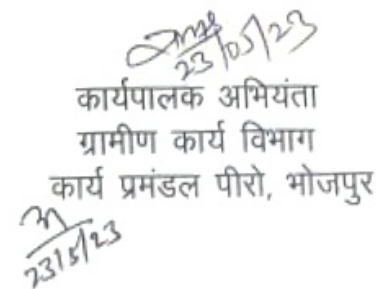 23/05/23
कार्यपालक अभियंता
ग्रामीण कार्य विभाग
कार्य प्रमंडल पीरो, भोजपुर
23/5/23